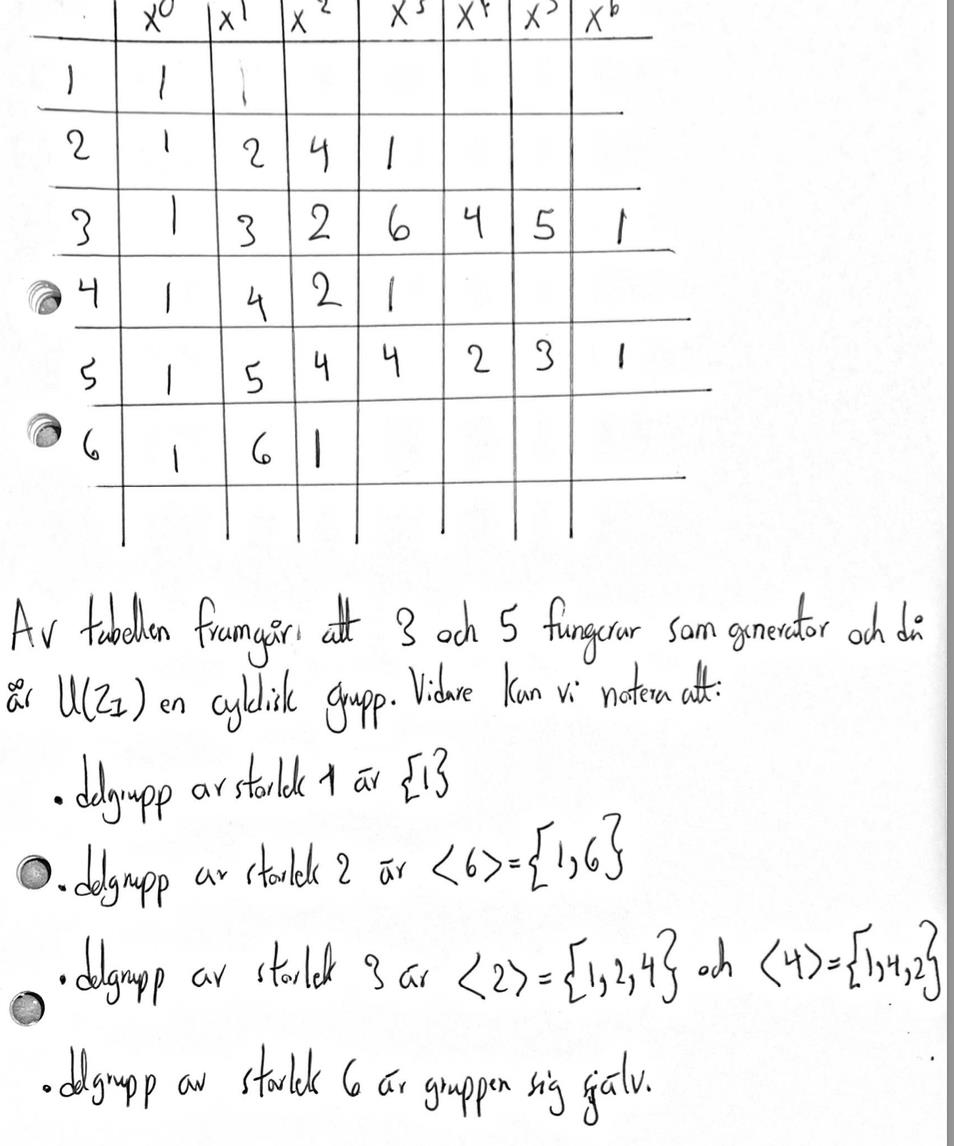 x⁰ x¹ x² x³ x⁴ x⁵ x⁶
1 1 1
2 1 2 4 1
3 1 3 2 6 4 5 1
4 1 4 2 1
5 1 5 4 4 2 3 1
6 1 6 1
Av tabellen framgår att 3 och 5 fungerar som generator och då
är U(Z7) en cyklisk grupp. Vidare kan vi notera att:
• delgrupp av storlek 1 är {1}
• delgrupp av storlek 2 är <6>={1,6}
• delgrupp av storlek 3 är <2>={1,2,4} och <4>={1,4,2}
• delgrupp av storlek 6 är gruppen sig själv.